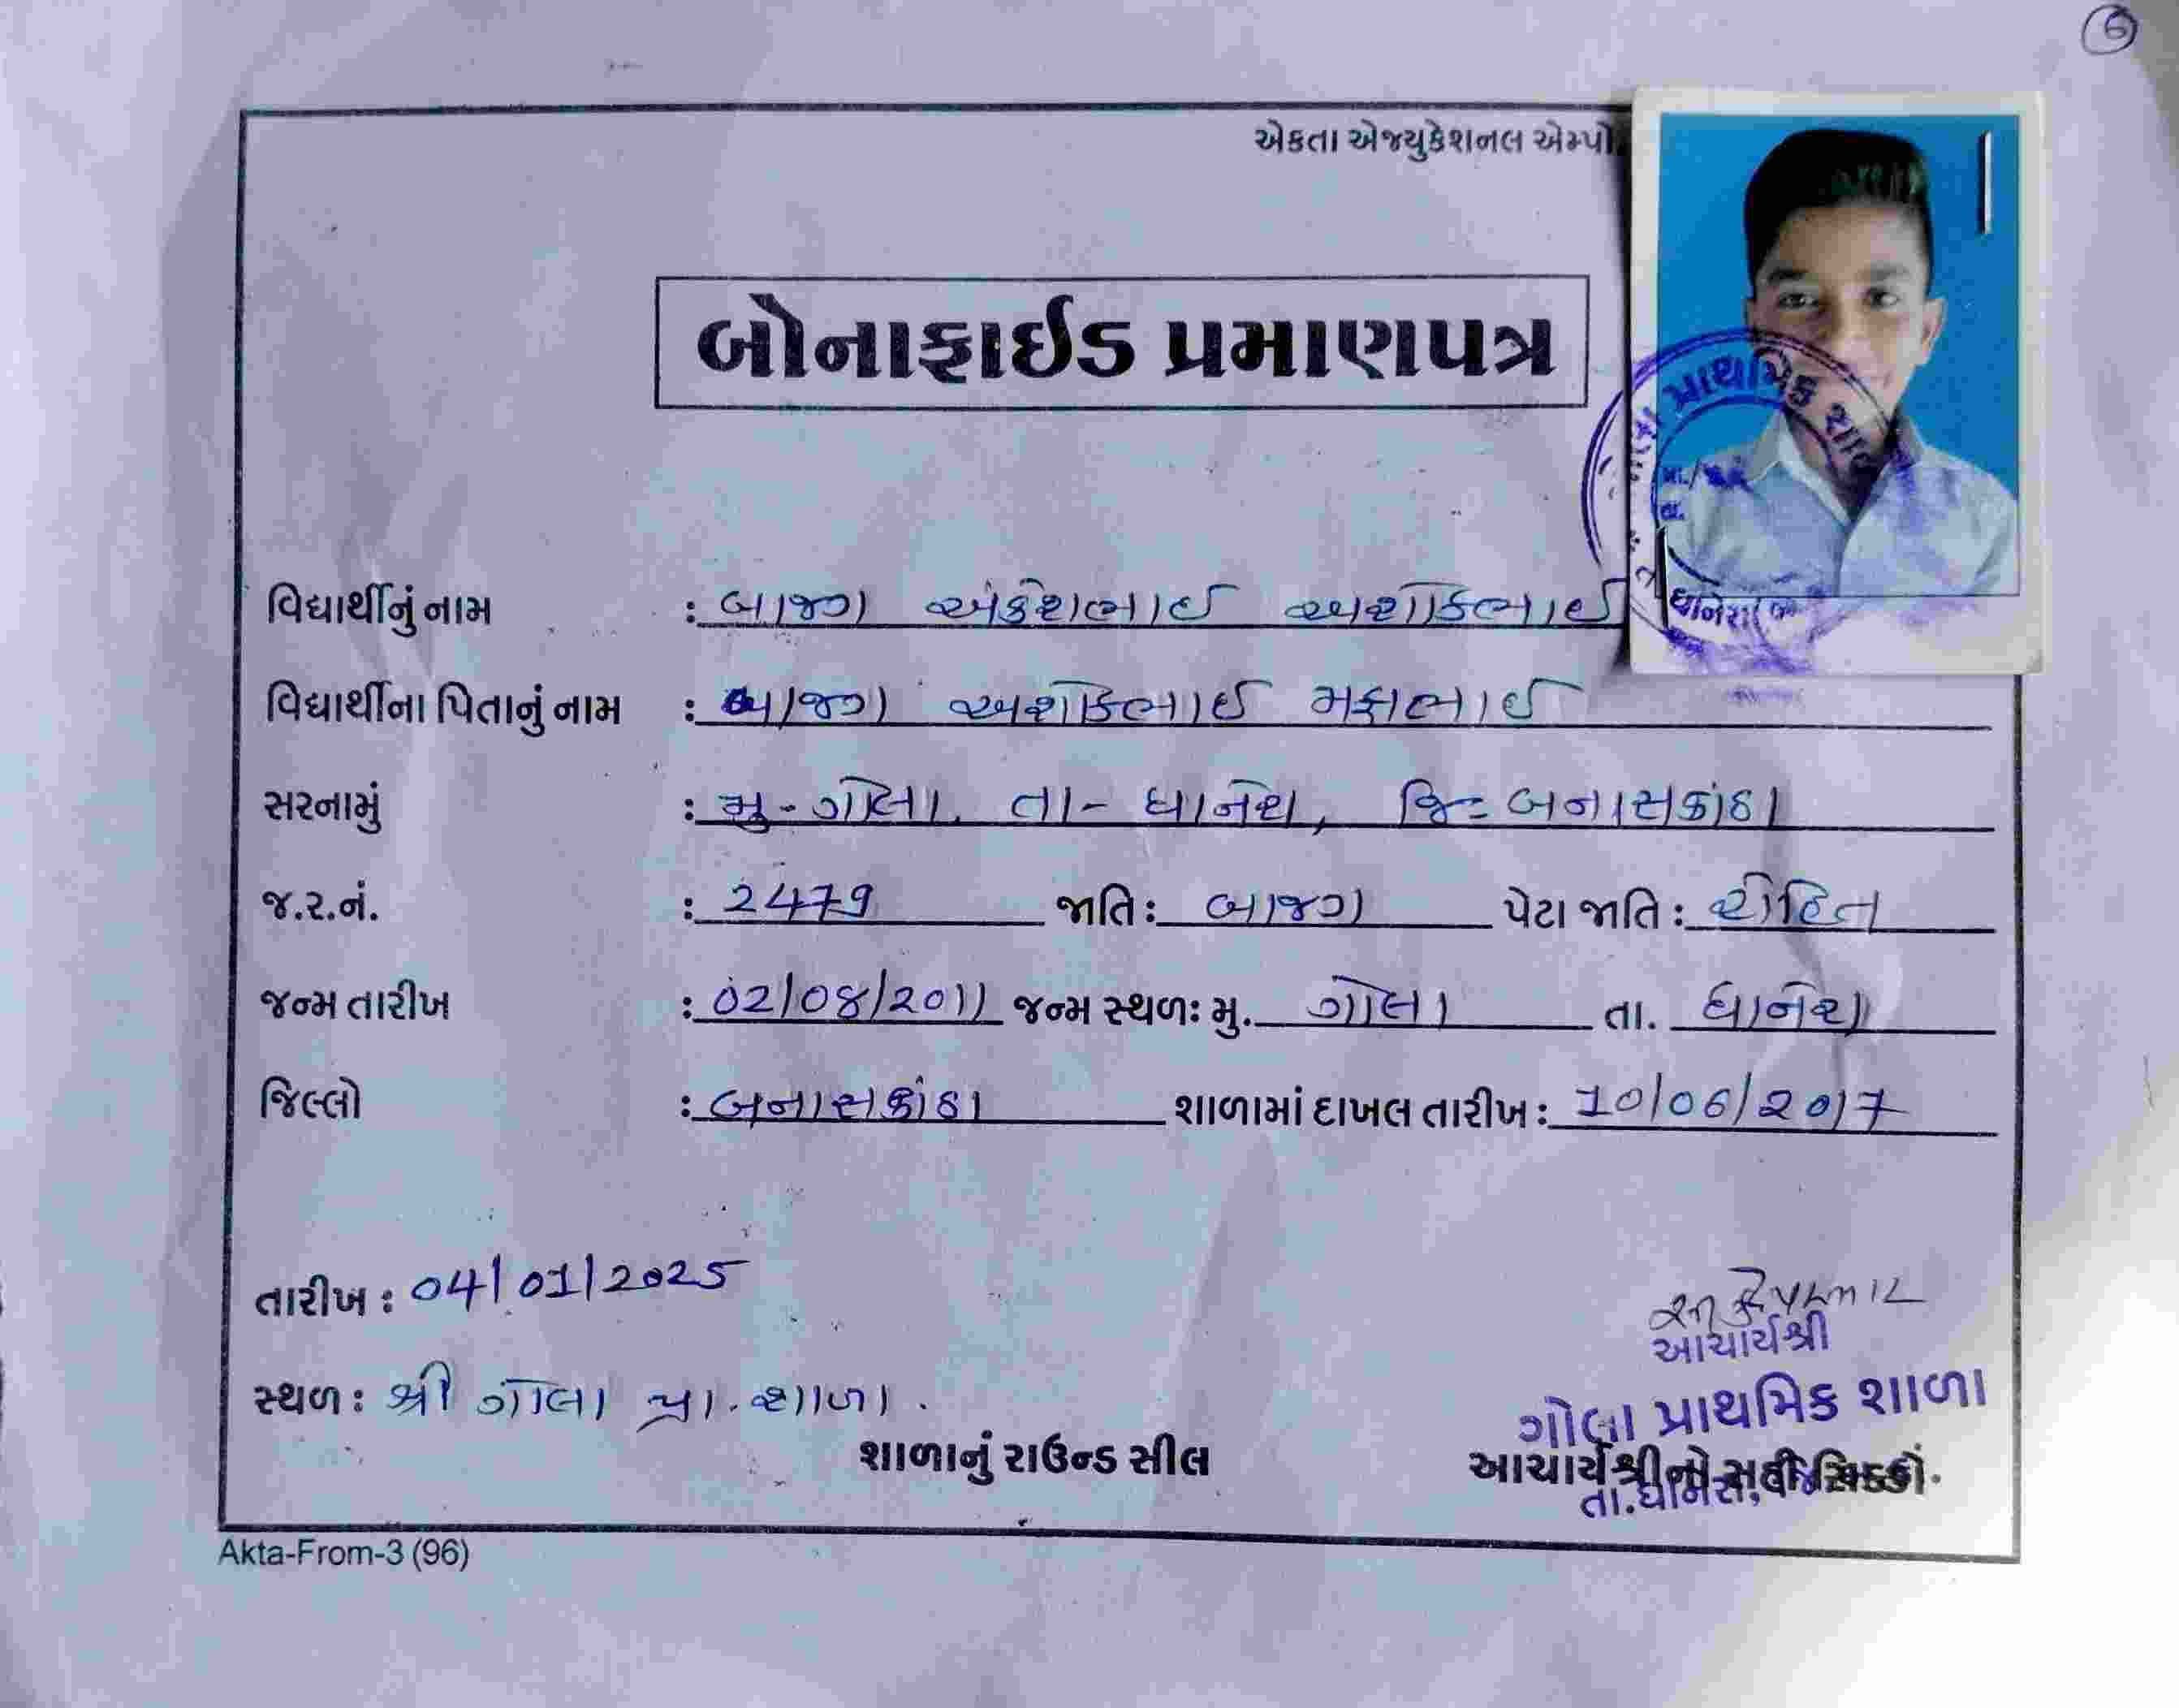 6
એકતા એજ્યુકેશનલ એમ્પો
બોનાફાઈડ પ્રમાણપત્ર
પ્રાથમિક શાળ
ધાનેરા
વિદ્યાર્થીનું નામ : બાજગ અંકેશભાઈ અશોકભાઈ
વિદ્યાર્થીના પિતાનું નામ : બાજગ અશોકભાઈ મફાભાઈ
સરનામું : મુ - ગોલા. તા - ધાનેરા, જિ = બનાસકાંઠા
જ.ર.નં. : 2479 જાતિ : બાજગ પેટા જાતિ : રોહિત
જન્મ તારીખ : 02/08/2011 જન્મ સ્થળઃ મુ. ગોલા તા. ધાનેરા
જિલ્લો : બનાસકાંઠા શાળામાં દાખલ તારીખ : 10/06/2017
તારીખ : 04/01/2025
સ્થળ : શ્રી ગોલા પ્રા. શાળા.
આચાર્યશ્રી
ગોલા પ્રાથમિક શાળા
શાળાનું રાઉન્ડ સીલ
આચાર્યશ્રીનો સહી સિક્કો.
તા.ધાનેરા,
Akta-From-3 (96)